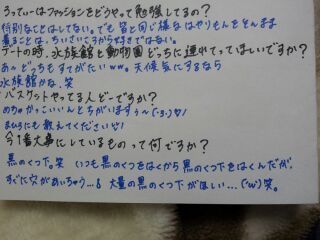 ろってぃーはファッションをどうやって勉強してるの？
特別なことはしてない。でも皆と同じ様なはやりもんをそんまま
着ることは、ちいさいころから好きではない。
デートの時、水族館と動物園どっちに連れてってほしいですか？
あ～どっちもすてがたいww。天候気にするなら
水族館かな、笑
バスケットやってる人どーですか？
めちゃかっこいいんとちがいますぅ～
まひろにも教えてくださいッ！
今1番大事にしているものって何ですか？
黒のくつ下。笑 いつも黒のくつをはくから黒のくつ下をはくんだが、
すぐに穴があいちゃう…。大量の黒のくつ下がほしい…('ω')笑。